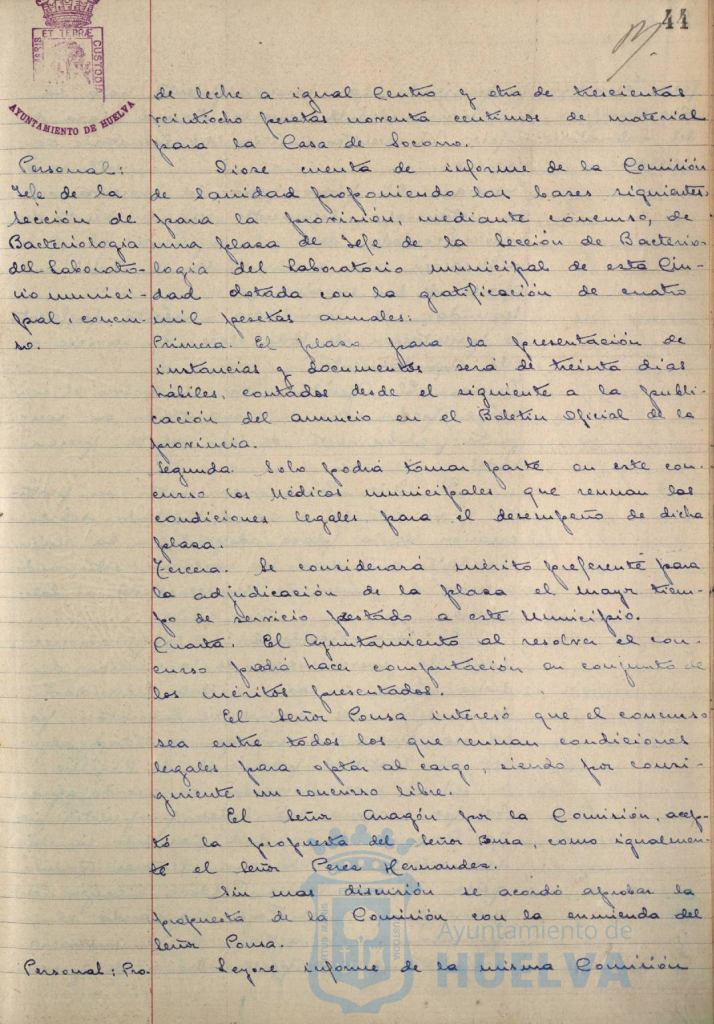 44
PORTUS MARIS ET TERRÆ CUSTODIA
AYUNTAMIENTO DE HUELVA
de leche a igual Centro y otra de trescientas
veintiocho pesetas noventa centimos de material
para la Casa de Socorro.
Personal:
Jefe de la
Sección de
Bacteriologia
del Laborato-
rio munici-
pal, concur-
so.
Diose cuenta de informe de la Comisión
de Sanidad proponiendo las bases siguientes
para la provisión, mediante concurso, de
una plaza de Jefe de la Sección de Bacterio-
logia del Laboratorio municipal de esta Ciu-
dad dotada con la gratificación de cuatro
mil pesetas anuales:
Primera. El plazo para la presentación de
instancias y documentos será de treinta dias
hábiles, contados desde el siguiente a la publi-
cación del anuncio en el Boletin Oficial de la
provincia.
Segunda. Solo podrá tomar parte en este con-
curso los Médicos municipales que reunan las
condiciones legales para el desempeño de dicha
plaza.
Tercera. Se considerará mérito preferente para
la adjudicación de la plaza el mayor tiem-
po de servicio prestado a este Municipio.
Cuarta. El Ayuntamiento al resolver el con-
curso podrá hacer computación en conjunto de
los méritos presentados.
El Señor Pousa interesó que el concurso
sea entre todos los que reunan condiciones
legales para optar al cargo, siendo por consi-
guiente un concurso libre.
El Señor Aragón por la Comisión, acep-
tó la propuesta del Señor Pousa, como igualmen-
te el Señor Perez Hernandez.
Sin mas discusión se acordó aprobar la
propuesta de la Comisión con la enmienda del
Señor Pousa.
Personal: Pro-
Leyose informe de la misma Comisión
Ayuntamiento de
HUELVA